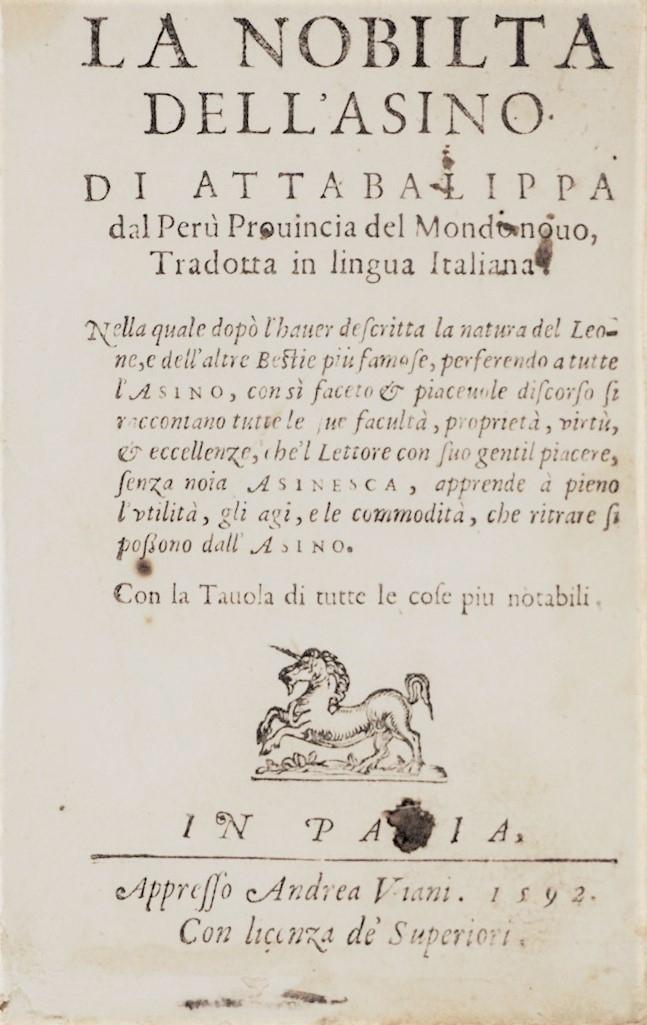 LA NOBILTA
DELL'ASINO.
DI ATTABALIPPA
dal Perù Prouincia del Mondonouo,
Tradotta in lingua Italiana.
Nella quale dopò l'hauer deſcritta la natura del Leo-
ne, e dell'altre Beſtie più famoſe, perferendo a tutte
l'ASINO, con sì faceto & piaceuole diſcorſo ſi
raccontano tutte le ſue facultà, proprietà, virtù,
& eccellenze, che'l Lettore con ſuo gentil piacere,
ſenza noia ASINESCA, apprende à pieno
l'vtilità, gli agi, e le commodità, che ritrare ſi
poßono dall' ASINO.
Con la Tauola di tutte le coſe piu notabili.
IN PAVIA,
Appreſſo Andrea Viani. 1592.
Con licenza de' Superiori.